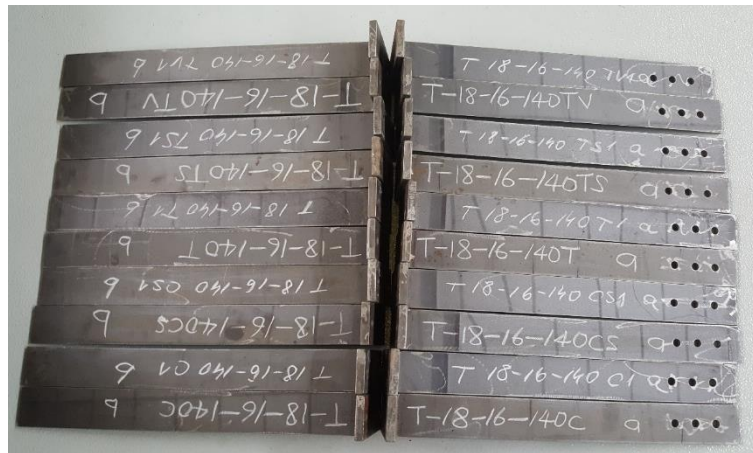 T-18-16-140 TV1 b
T 18-16-140 TV1 a
T-18-16-140TV b
T-18-16-140TV a
T-18-16-140 TS1 b
T 18-16-140 TS1 a
T-18-16-140TS b
T-18-16-140TS a
T 18-16-140 T1 b
T 18-16-140T1 a
T-18-16-140T b
T-18-16-140T a
T-18-16-140 CS1 b
T 18-16-140 CS1 a
T-18-16-140CS b
T-18-16-140CS a
T-18-16-140 C1 b
T 18-16-140 C1 a
T-18-16-140C b
T-18-16-140C a